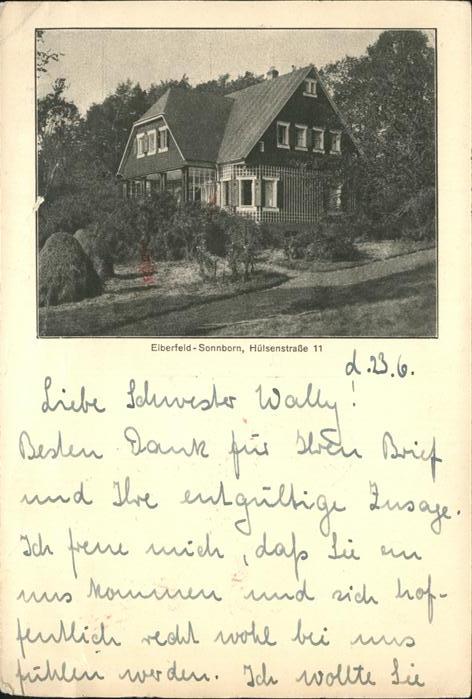 Elberfeld-Sonnborn, Hülsenstraße 11
d. 23.6.
Liebe Schwester Wally!
Besten Dank für Ihren Brief
und Ihre entgültige Zusage.
Ich freue mich, daß Sie zu
uns kommen und sich hof-
fentlich recht wohl bei uns
fühlen werden. Ich wollte Sie